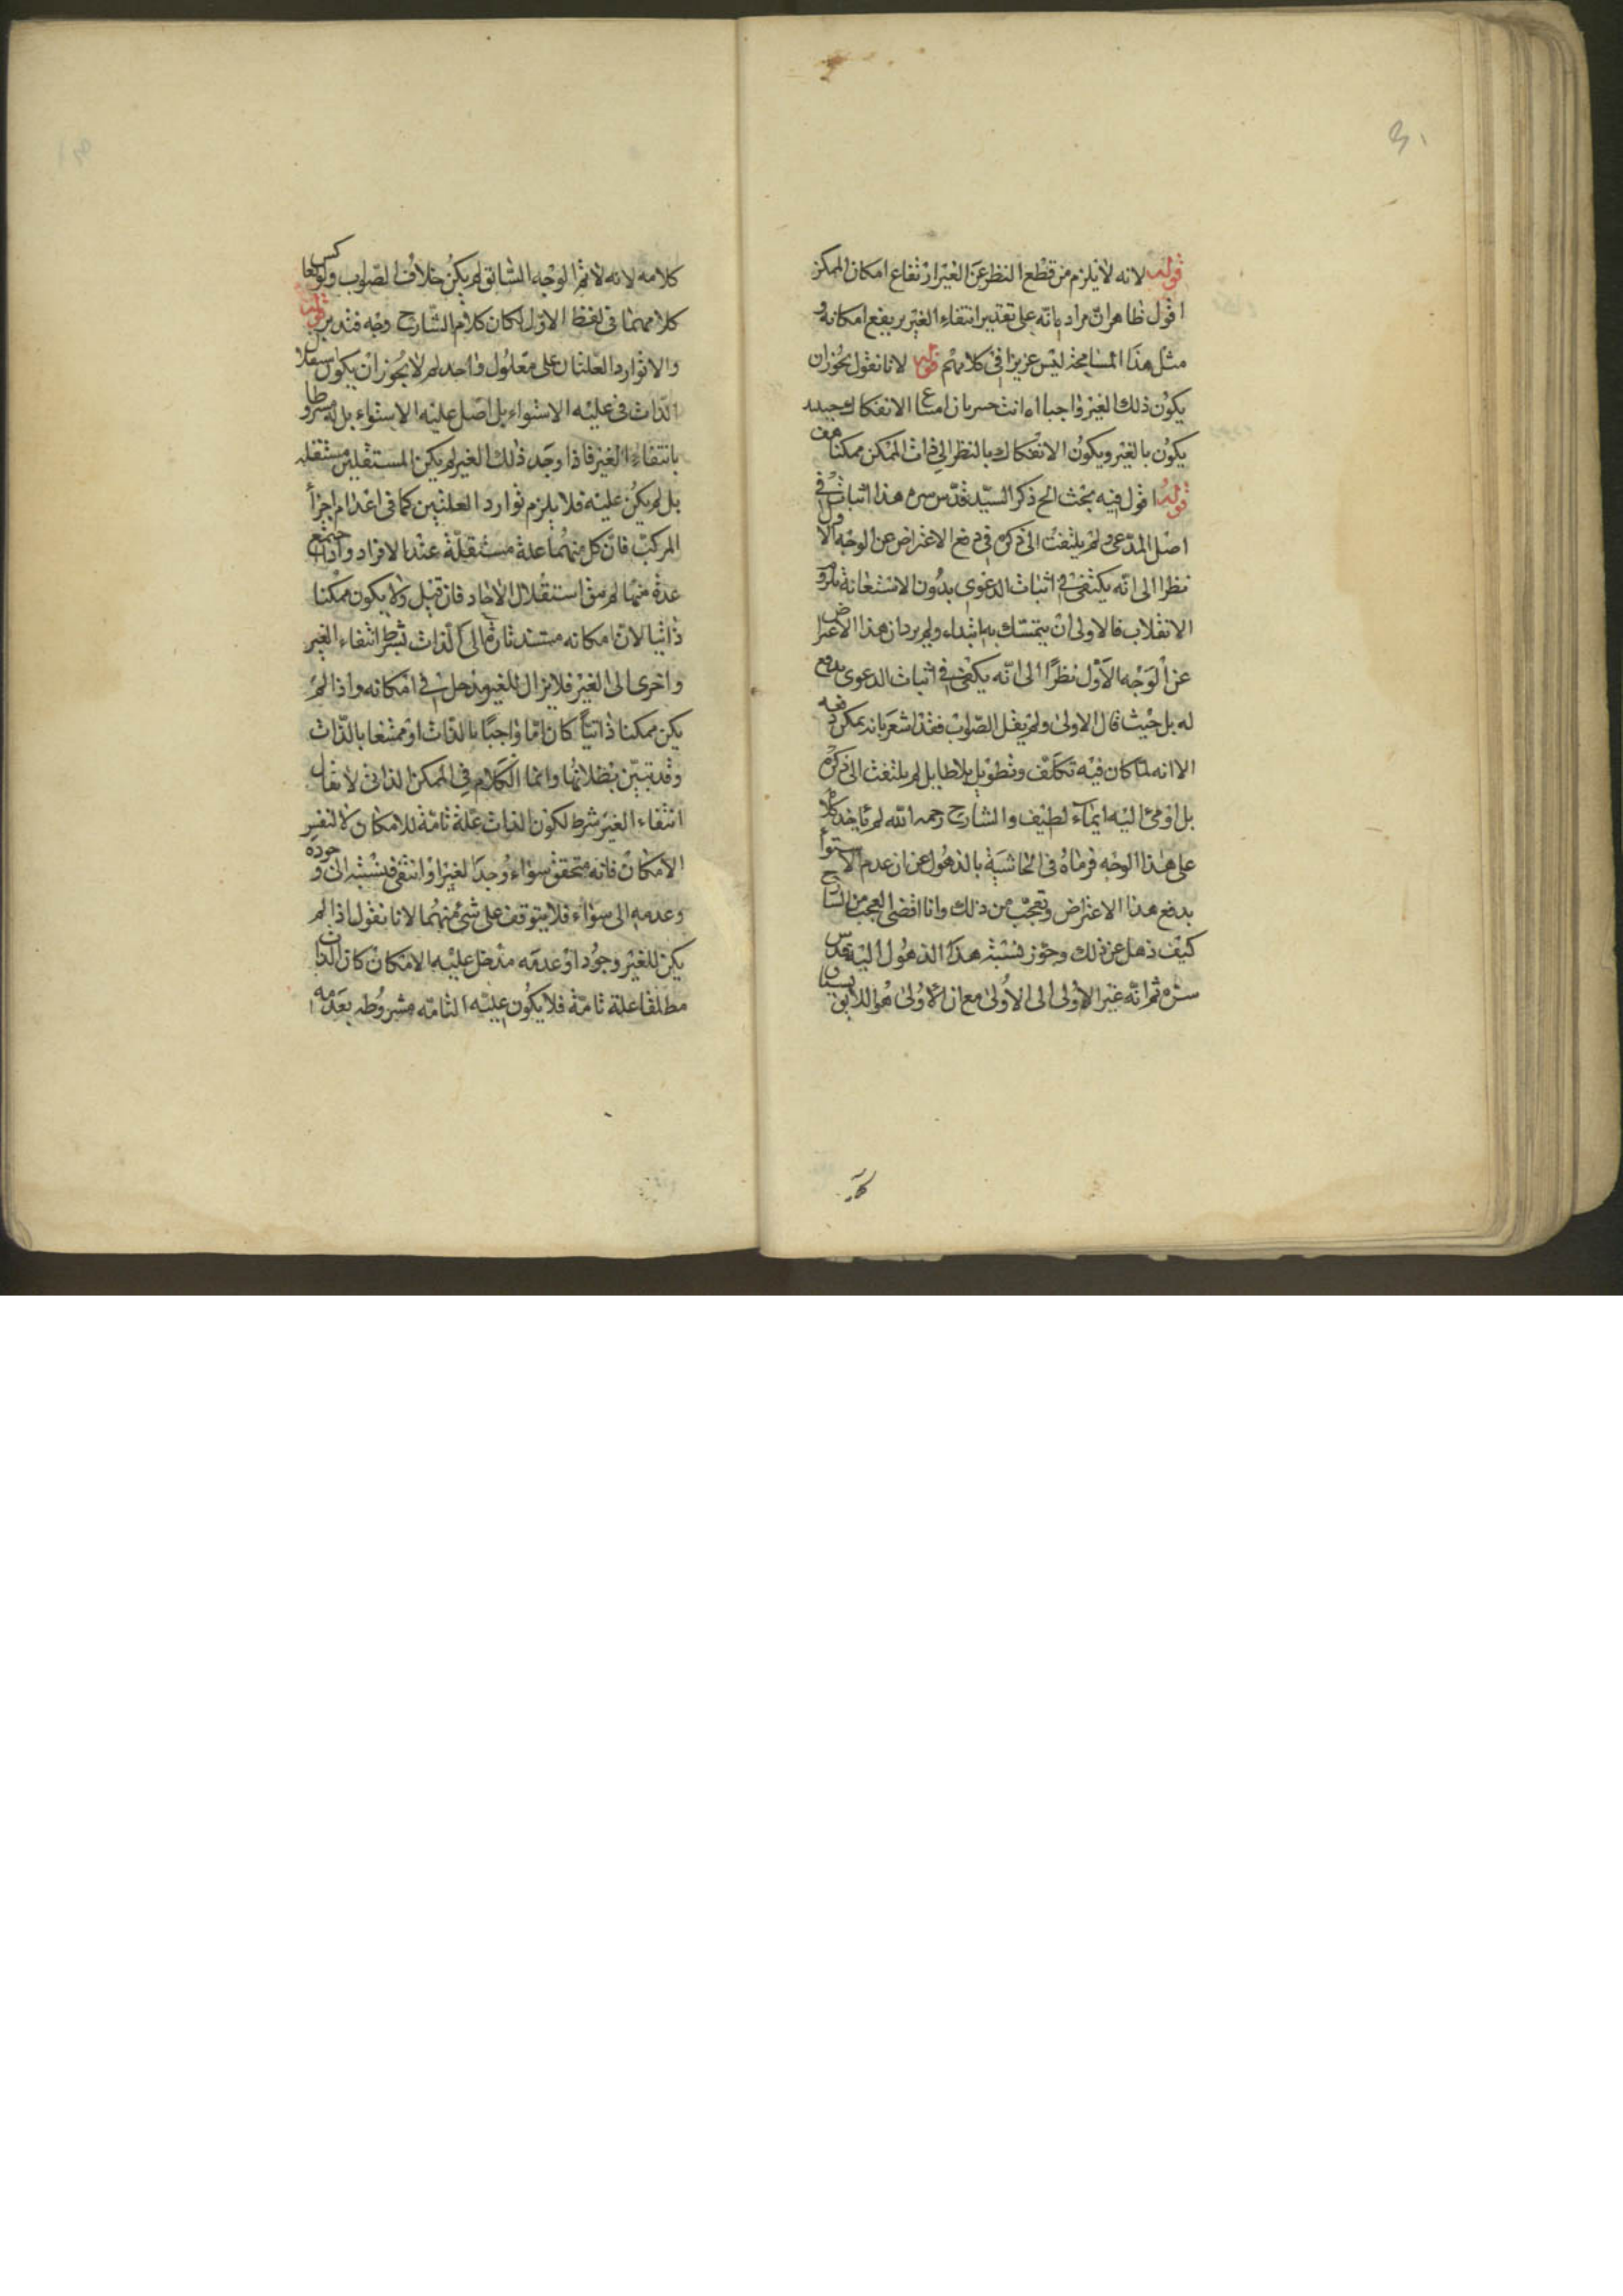 قوله لانه لا يلزم من قطع النظر عن الغير ارتفاع امكان الممكن
اقول ظاهر ان مراده بانه على تقدير انتفاء الغير يرتفع امكانه و
مثل هذا المسامحة ليس عزيزا في كلامهم قوله لانا نقول يجوز ان
يكون ذلك الغير واجبا اه انت خبير بان امتناع الانفكاك حينئذ
يكون بالغير ويكون الانفكاك بالنظر الى ذات الممكن ممكنا هف
قوله اقول فيه بحث الخ ذكر السيد قدس سره هذا اثبات في
اصل المدعى ولم يلتفت الى ذكره في دفع الاعتراض عن الوجه الاول
نظرا الى انه يكتفى في اثبات الدعوى بدون الاستعانة بلزوم
الانقلاب فالاولى ان يتمسك به ابتداء ولم يرد ان هذا الاعتراض
عن الوجه الاول نظرا الى انه يكفي في اثبات الدعوى يدفع
له بل حيث قال الاولى ولم يقل الصواب فقد اشعر بانه يمكن دفعه
الا انه لما كان فيه تكلف وتطويل بلا طايل لم يلتفت الى ذكره
بل اومئ اليه ايماء لطيف والشارح رحمه الله لم ياخذ كلامه
على هذا الوجه فرماه في الحاشية بالذهول عن ان عدم الاستواء
يدفع هذا الاعتراض وتعجب من ذلك وانا اقضى العجب من الشارح
كيف ذهل عن ذلك وجوز نسبة هذا الذهول اليه قدس
سره ثم انه غير الاولى الى الاولى مع ان الاولى هو اللايق بسياق
كلامه لانه لا تم الوجه السابق لم يكن خلاف الصواب ولو عكس
كلامهما في لفظ الاول لكان كلام الشارح وجه فتدبر قوله
والا توارد العلتان على معلول واحد لم لا يجوز ان يكون استقلال
الذات في علية الاستواء بل اصل علية الاستواء بل له مشروطا
بانتفاء الغير فاذا وجد ذلك الغير لم يكن المستقلين مستقلة
بل لم يكن علية فلا يلزم توارد العلتين كما في اعدام اجزأ
المركب فان كل منهما علة مستقلة عند الافراد واذا اجتمع
عدة منها لم يبق استقلال الاحاد فان قيل ولا يكون ممكنا
ذاتيا لان امكانه مستند تارة الى الذات بشرط انتفاء الغير
واخرى الى الغير فلا يزال للغير مدخل في امكانه واذا لم
يكن ممكنا ذاتيا كان اما واجبا بالذات او ممتنعا بالذات
وقد تبين بطلانهما وانما الكلام في الممكن الذاتى لا يقال
انتفاء الغير شرط لكون الذات علة تامة للامكان لا لنفس
الامكان فانه متحقق سواء وجد الغير او انتفى فنسبته الى وجوده
وعدمه الى سواء فلا يتوقف على شئ منهما لانا نقول اذا لم
يكن للغير وجود او عدمه مدخل علية الامكان كان الذات
مطلقا علة تامة فلا يكون علية التامة مشروطه بعدمه